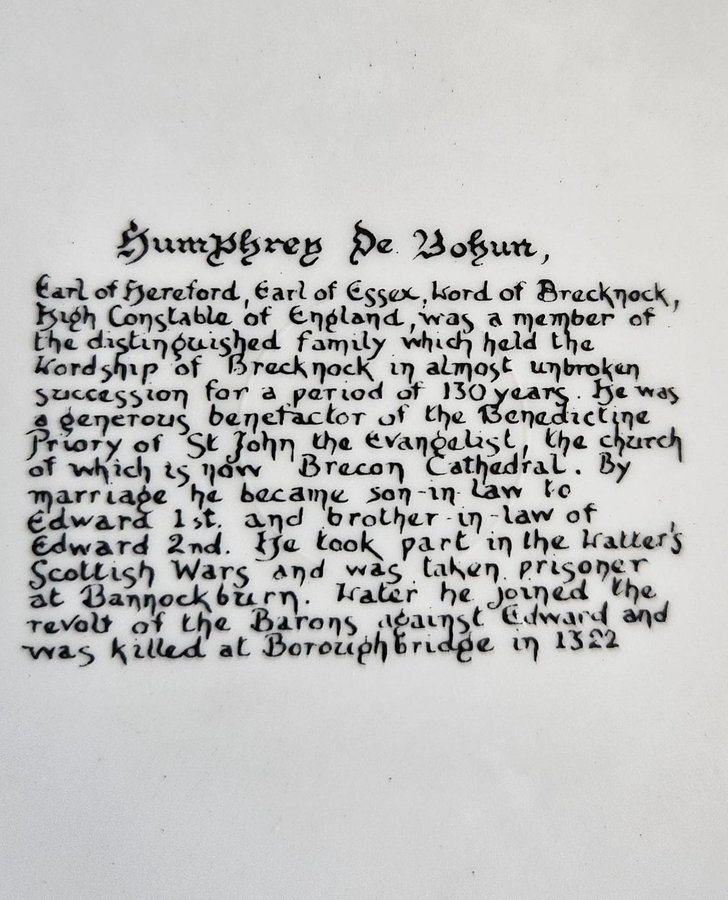 Humphrey De Bohun,
Earl of Hereford, Earl of Essex, Lord of Brecknock,
High Constable of England, was a member of
the distinguished family which held the
Lordship of Brecknock in almost unbroken
succession for a period of 130 years. He was
a generous benefactor of the Benedictine
Priory of St John the Evangelist, the church
of which is now Brecon Cathedral. By
marriage he became son-in-law to
Edward 1st. and brother-in-law of
Edward 2nd. He took part in the Latter's
Scottish Wars and was taken prisoner
at Bannockburn. Later he joined the
revolt of the Barons against Edward and
was killed at Boroughbridge in 1322